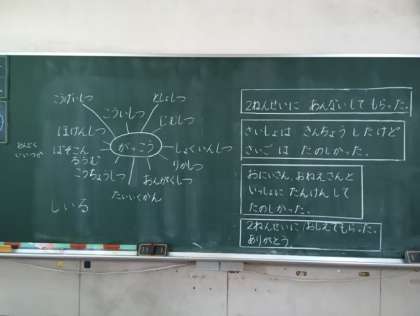 としょしつ
こういしつ
じむしつ
ほけんしつ
がっこう
しょくいんしつ
りかしつ
おんがくしつ
こうちょうしつ
たいいくかん
しいる
2ねんせいに あんないして もらった。
さいしょは きんちょう したけど
さいごは たのしかった。
おにいさん、おねえさんと
いっしょに たんけん して
たのしかった。
2ねんせいに おしえてもらった。
ありがとう